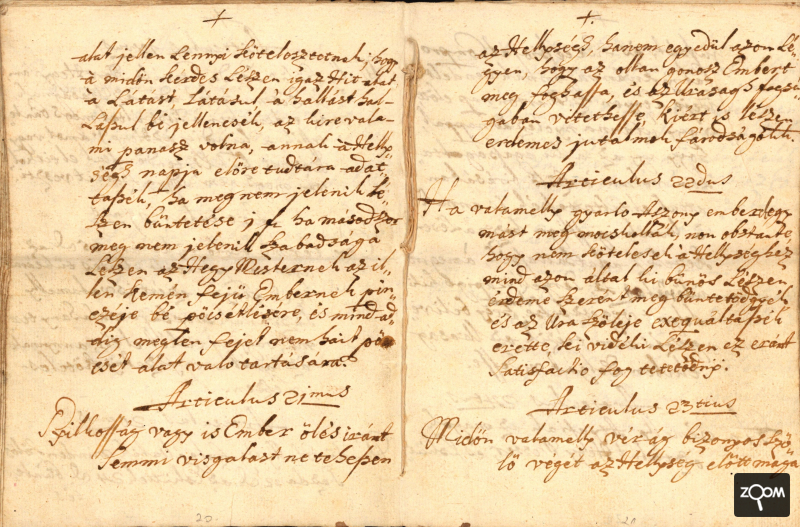 alat jellen Lennyi kötelesztetnek, hogy
à midőn kerdes Lészen igaz Hit alat
à Látást, Látásul à hallást hal-
Lásul bé jellencsék, az kire vala-
mi panasz volna, annak à Helly
ségh napja előre tudtára adat
tassék, ha meg nem jelenik lé
szen büntetése j f. ha masodszor
meg nem jelenik szabadsága
Lészen az Hegy Mesternek az il-
len kemén fejü Embernek pin
czéje bé
és mind ad
dig meglen fejet nem hait
csét alat valo tartására.
Articulus 21mus
Gyilkosság vagy is Ember ölés iránt
semmi visgalast ne tehessen
az Hellység, hanem egyedül azon Lé
gyen, hogy az ollan gonosz Embert
meg foghassa, és az Uraságh fogsá
gában vitethesse, kiért is lészen
erdemes jutalmok fáradságokk
Articulus 22dus
Ha valamelly gyarlo Aszony ember egy
mást meg mocskollák, non obstante
hogy nem kötelesek à Hellységhez
mind azon által ki bünös Lészen
érdeme szerent meg büntetődgyék
és az Ura szöleje exequaltassék
erette, ki vidéki Lészen ez eránt
Satisfactio fog tetetődnyi.
Articulus 23tius
Midőn valamelly virág bizonyos szö
lő végét az Hellység előtt maga
20
21
ZOOM